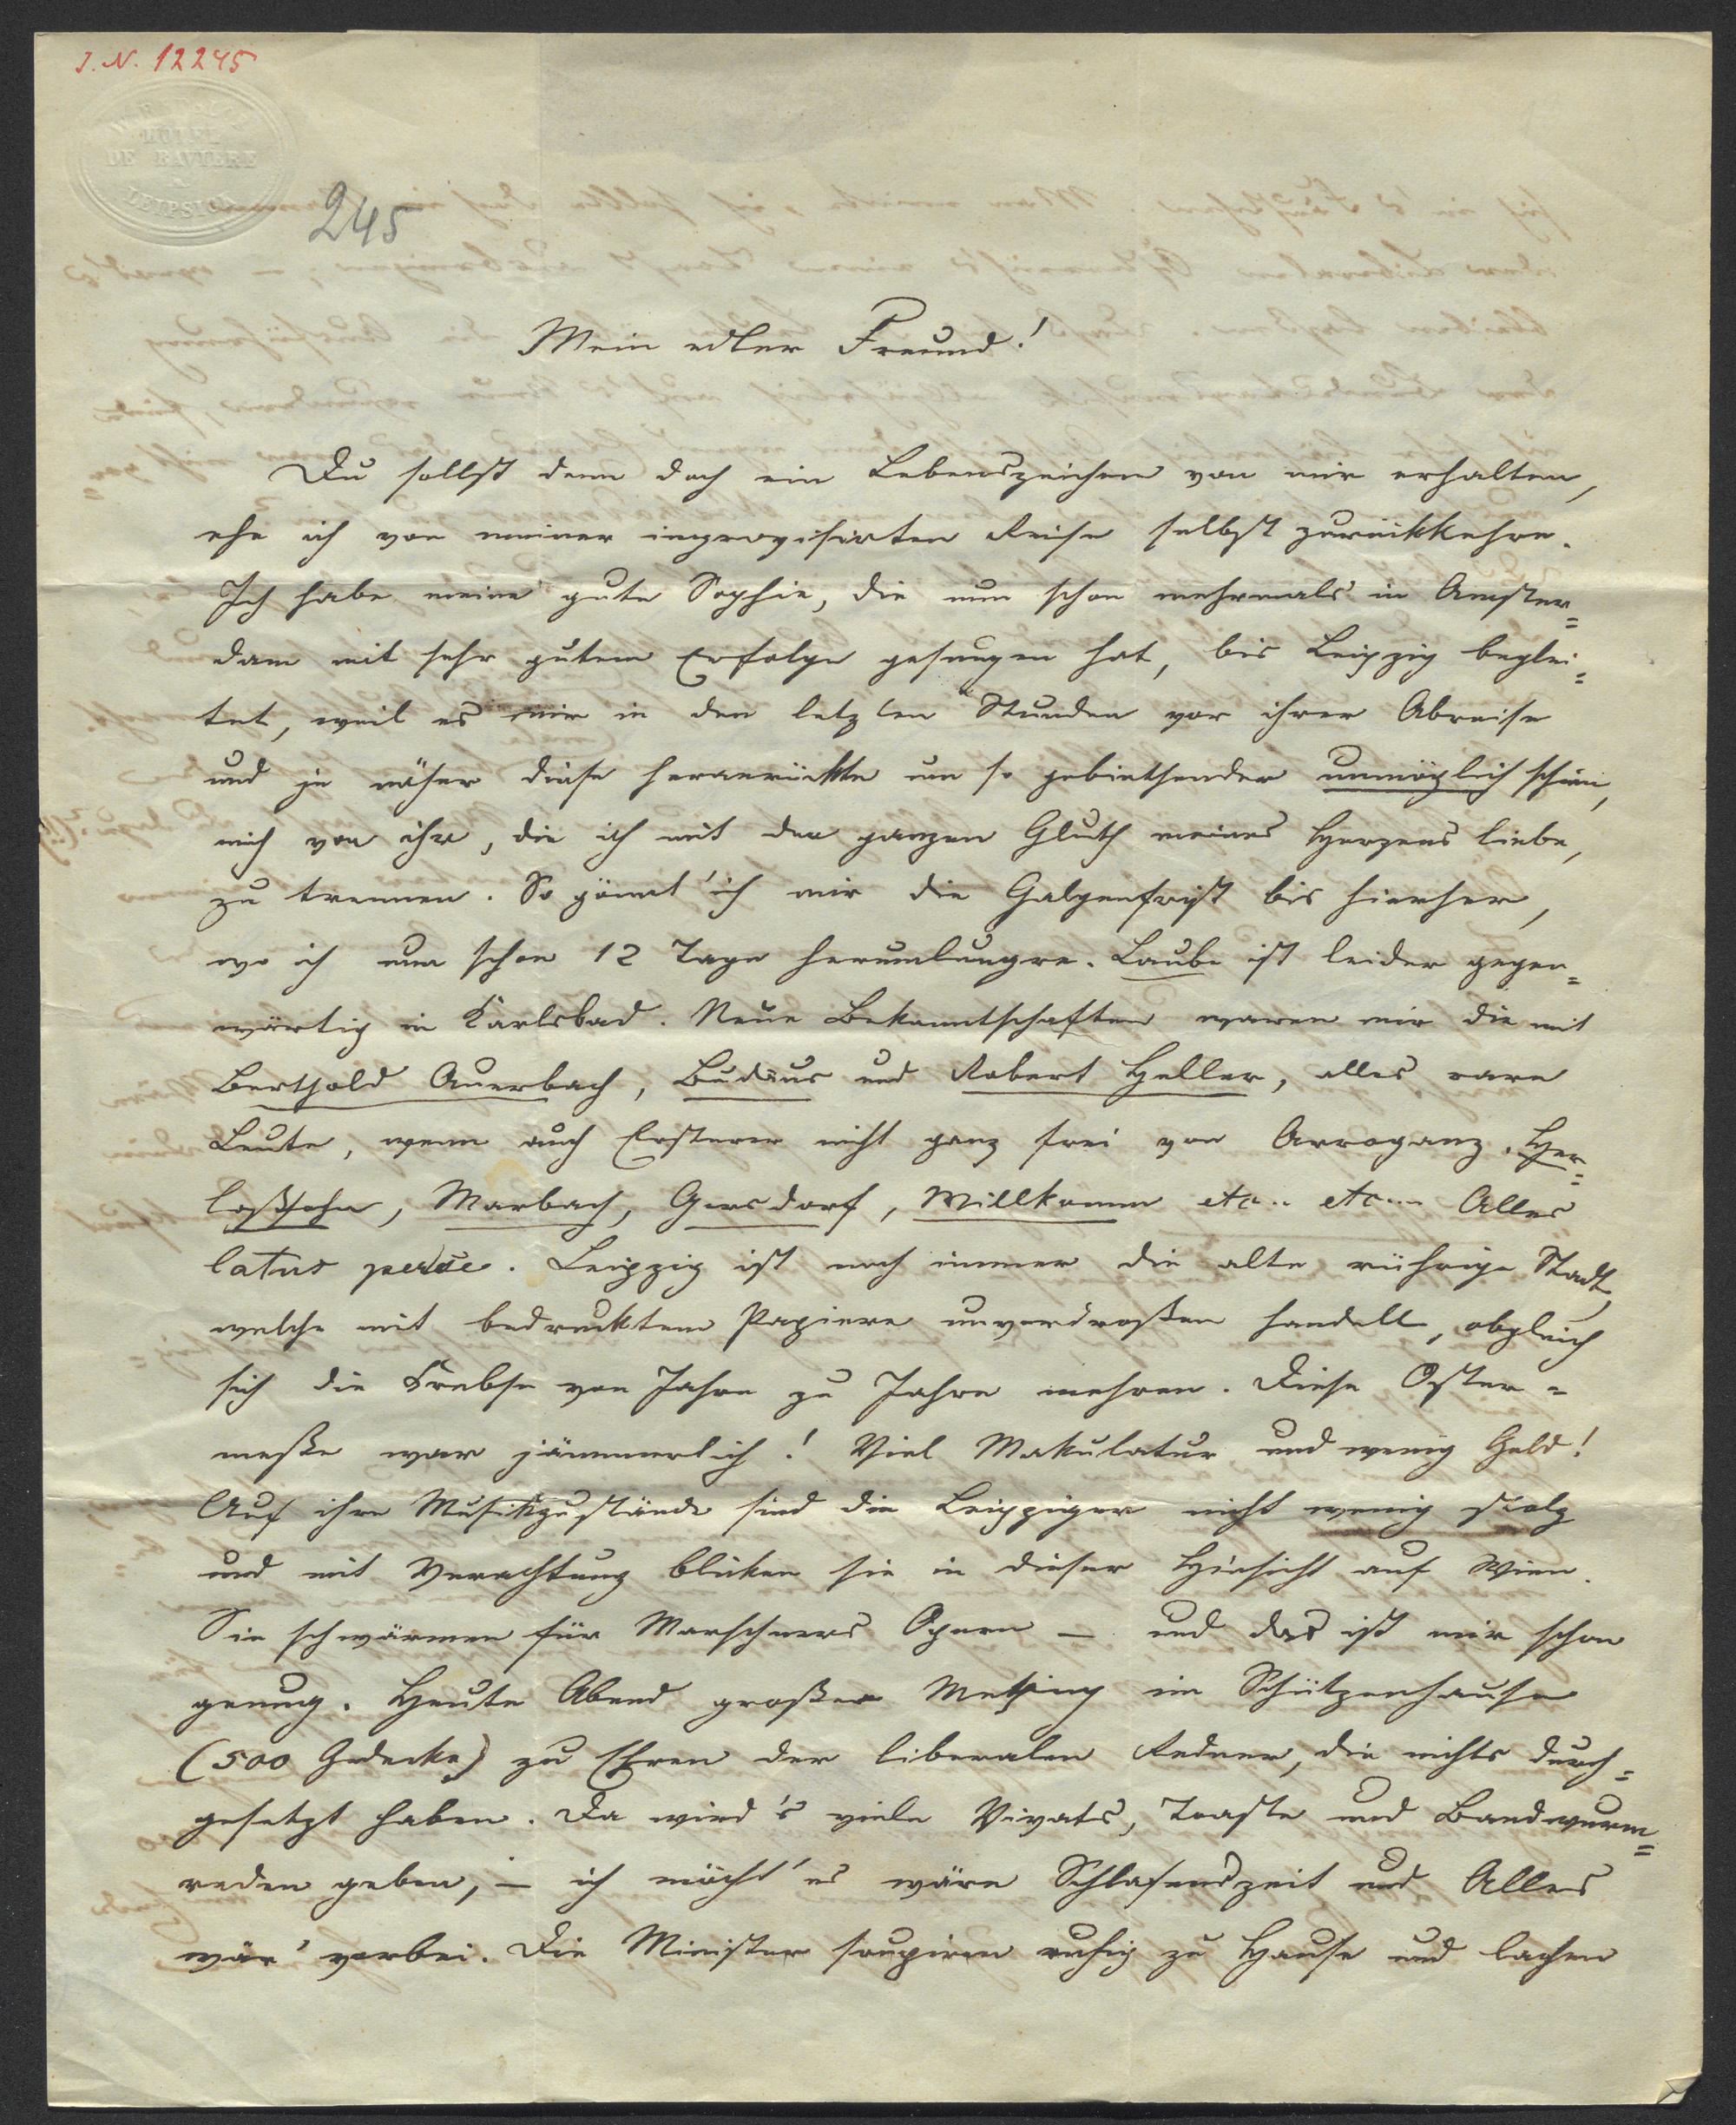 I. N. 12245
HOTEL
DE BAVIERE
LEIPSIC
245
Mein edler Freund!
Du sollst denn doch ein Lebenszeichen von mir erhalten,
ehe ich von meiner improvisirten Reise selbst zurückkehre.
Ich habe meine gute Sophie, die nun schon mehrmals in Amster=
dam mit sehr gutem Erfolge gesungen hat, bis Leipzig beglei=
tet, weil es mir in den letzten Stunden vor ihrer Abreise
und je näher diese heranrückte um so gebiethender unmöglich schien,
mich von ihr, die ich mit der ganzen Gluth meines Herzens liebe,
zu trennen. So gönnt' ich mir die Galgenfrist bis hierher,
wo ich nun schon 12 Tage herumlungre. Laube ist leider gegen=
wärtig in Karlsbad. Neue Bekanntschaften waren mir die mit
Berthold Auerbach, Budäus und Robert Heller, alles rare
Leute, wenn auch Ersterer nicht ganz frei von Arroganz. Her=
loßsohn, Marbach, Gersdorf, Willkomm etc.. etc... Alles
latus per se. Leipzig ist noch immer die alte rührige Stadt,
welche mit bedrucktem Papiere unverdroßen handelt, obgleich
sich die Krebse von Jahre zu Jahre mehren. Diese Oster=
meße war jämmerlich! Viel Makulatur und wenig Geld!
Auf ihre Musikzustände sind die Leipziger nicht wenig stolz
und mit Verachtung blicken sie in dieser Hinsicht auf Wien.
Sie schwärmen für Marschners Opern — und das ist mir schon
genug. Heute Abend großes Meeting im Schützenhause
(500 Gedecke) zu Ehren der liberalen Redner, die nichts durch=
gesetzt haben. Da wird's viele Vivats, Toaste und Bandwurm=
reden geben, — ich möcht' es wäre Schlafenszeit und Alles
wär' vorbei. Die Minister soupiren ruhig zu Hause und lachen